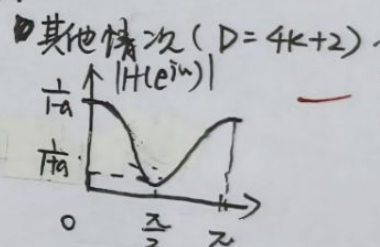 其他情次（D=4k+2）
|H(e^{jω})|
1/(1-a)
1/(1+a)
0 π/2 π